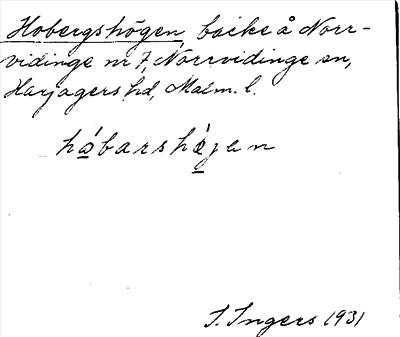 Hobergshögen, backe å Norr-
vidinge nr 7, Norrvidinge sn,
Harjagers hd, Malm. l.
hábarshǿjen
I. Ingers 1931